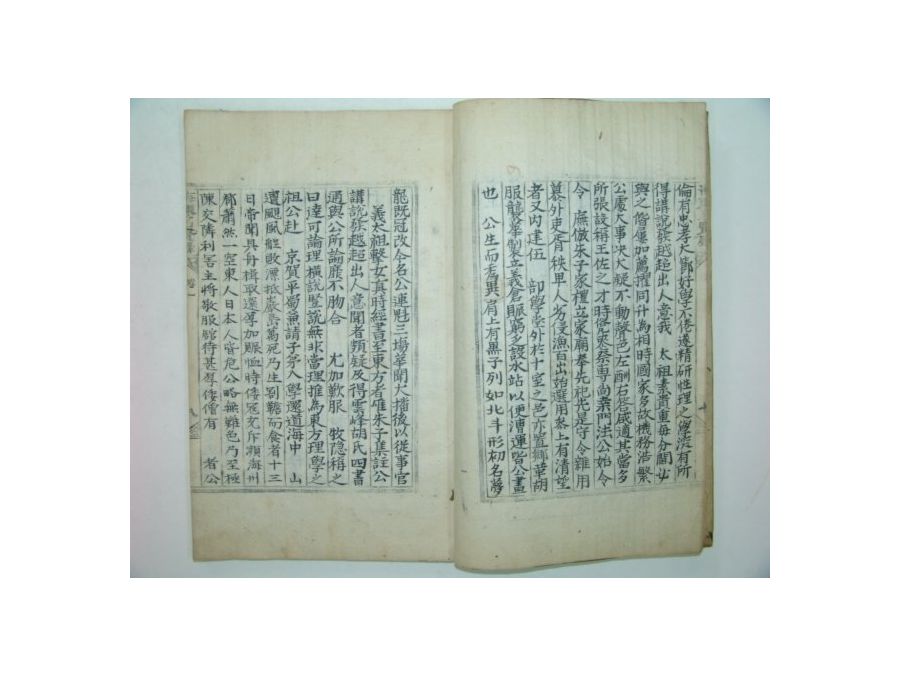 倫有忠孝大節好學不倦遂精研性理之學深有所
得講說發越超出人意我 太祖素貴重每分閫必
與之偕屢加薦擢同升為相時國家多故機務浩繁
公處大事決大疑不動聲色左酬右答咸適其當多
所張設稱王佐之才時俗喪祭專尚桑門法公始令
令 廡倣朱子家禮立家廟奉先祀先是守令雜用
叅外吏胥秩卑人劣侵漁百出始選用叅上有清望
者又內建伍 部學堂外於十室之邑亦置鄉革胡
服襲華製立義倉賑窮乏設水站以便漕運皆公畫
也 公生而秀異肩上有黑子列如北斗形初名夢
龍既冠改今名公連魁三場華聞大播後以從事官
義太祖擊女真時經書至東方者唯朱子集註公
講說發越超出人意聞者頗疑及得雲峰胡氏四書
通與公所論靡不脗合 尤加歎服 牧隱稱之
曰達可論理橫說竪說無非當理推為東方理學之
祖公赴 京賀平蜀兼請子弟入學還道海中 山
遭颶風船敗漂抵巖島萬死乃生割韉而食者十三
日帝聞具舟楫取還厚加賑恤時倭寇充斥瀕海州
郡蕭然一空東人日本人皆危公略無難色乃至極
陳交隣利害主將敬服館待甚厚倭僧有 者公